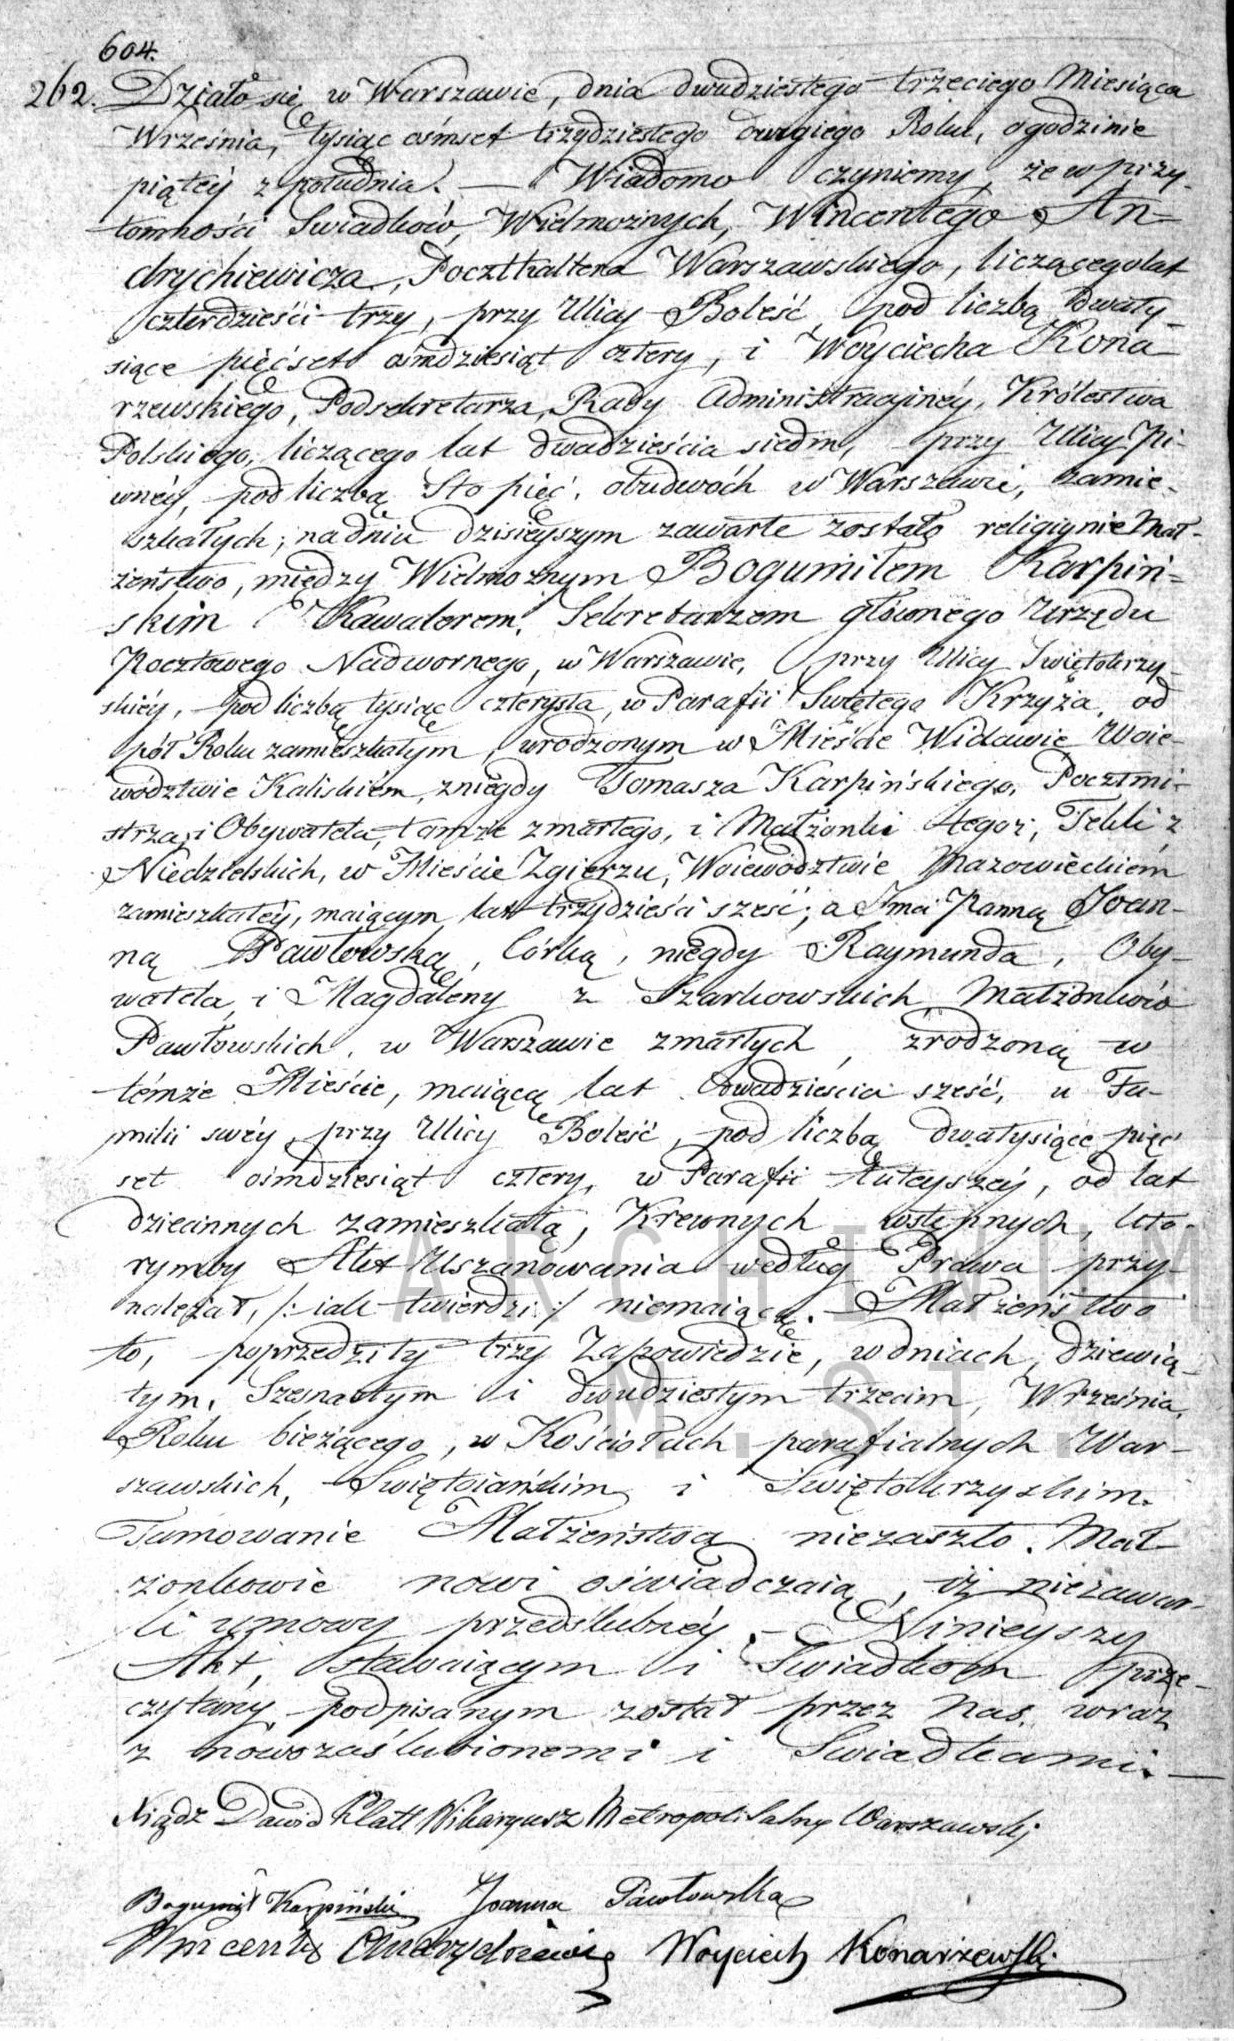 604.
262. Działo się w Warszawie, dnia dwudziestego trzeciego Miesiąca
Września, tysiąc ośmset trzydziestego drugiego Roku, o godzinie
piątey z południa. — Wiadomo czyniemy, że w przy-
tomności Swiadków, Wielmożnych, Wincentego An-
drychiewicza, Poczthaltera Warszawskiego, liczącego lat
czterdzieści trzy, przy Ulicy Boleść, pod liczbą dwaty-
siące pięćset ośmdziesiąt cztery, i Woyciecha Kona-
rzewskiego, Podsekretarza, Rady Administracyinéy, Królestwa
Polskiego, liczącego lat dwadzieścia siedm, przy Ulicy Pi-
wnéy, pod liczbą sto pięć, obudwóch w Warszawie, zamie-
szkałych; na dniu dzisieyszym zawarte zostało religiynie Mał-
żeństwo, między Wielmożnym Bogumiłem Karpiń-
skim Kawalerem, Sekretarzem głównego Urzędu
Pocztowego Nadwornego, w Warszawie, przy Ulicy Swiętokrzy-
skiéy, pod liczbą tysiąc czterysta, w Parafii Swiętego Krzyża, od
pół Roku zamieszkałym, urodzonym w Mieście Widawie Woie-
wództwie Kaliskiém, z niegdy Tomasza Karpińskiego, Pocztmi-
strza, i Obywatela, tamże zmarłego, i Małżonki tegoż, Tekli z
Niedzielskich, w Mieście Zgierzu, Woiewództwie Mazowieckiém
zamieszkałéy, maiącym lat trzydzieści sześć; a Jmci Panną Joan-
ną Pawłowską, Córką, niegdy Raymunda, Oby-
watela, i Magdaleny z Szarkowskich Małżonków
Pawłowskich, w Warszawie zmarłych, zrodzoną w
témże Mieście, maiącą lat dwadzieścia sześć, u Fa-
milii swéy, przy Ulicy Boleść, pod liczbą dwatysiące pięć
set ośmdziesiąt cztery, w Parafii tuteyszéy, od lat
dziecinnych zamieszkałą, Krewnych wstępnych, któ-
rymby Akt Uszanowania według Prawa przy-
należał, /: iak twierdzi :/ niemaiącą. — Małżeństwo
to, poprzedziły trzy Zapowiedzie, w dniach, dziewią-
tym, Szesnastym i dwudziestym trzecim, Września,
Roku bieżącego, w Kościołach parafialnych War-
szawskich, Swiętoiańskim i Swiętokrzyskim.
Tamowanie Małżeństwa niezaszło. Mał-
żonkowie nowi oświadczaią, iż niezawar-
li umowy przedślubnéy. — Ninieyszy
Akt, stawaiącym i Swiadkom prze-
czytany, podpisanym został przez Nas, wraz
z nowozaślubionemi i Swiadkami. —
Xiądz Dawid Platt Wikaryusz Metropolitalny Warszawski
Bogumił Karpiński Joanna Pawłowska
Wincenty Andrychiewicz Woyciech Konarzewski
ARCHIWUM
M. ST.